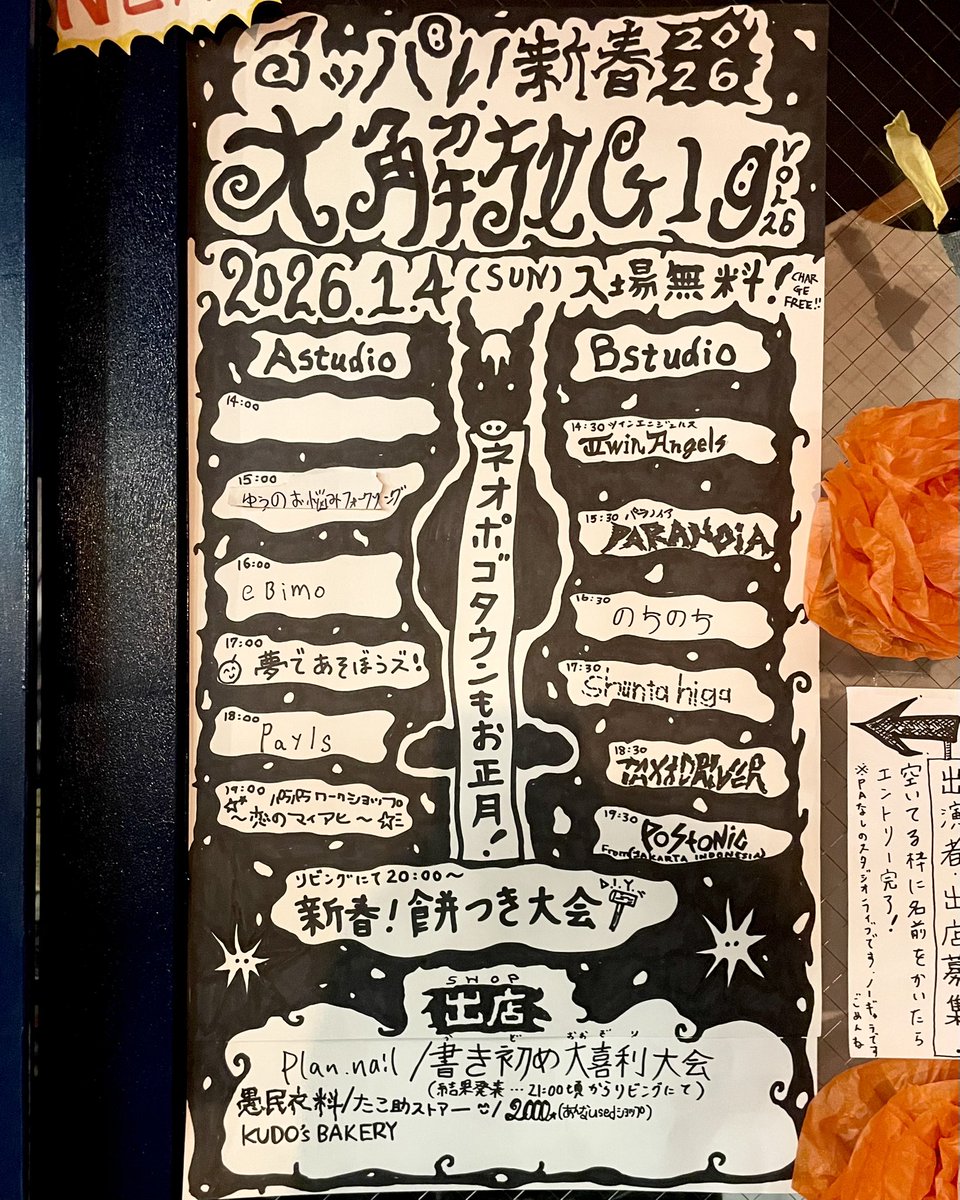 NEW
マッパ!新春2026
大解放Gig VOL26
2026.1.4(SUN)入場無料!CHARGE FREE!!
Astudio
14:00
15:00
ゆうのお悩みフォークリング
16:00
eBimo
17:00
夢であそぼうズ!
18:00
Payls
19:00
パラパラワークショップ
〜恋のマイアヒ〜
ネオポゴタウンもお正月!
Bstudio
14:30 ツインエンジェルス
Twin Angels
15:30 パラノイア
PARANOiA
16:30
のちのち
17:30
Shunta higa
18:30
TAXi DRiVER
19:30
POStONiC
From(JAKARTA INDONESIA)
リビングにて20:00〜
新春!餅つき大会
D.I.Y.
SHOP
出店
plan.nail/書き初め大喜利大会
(結果発表…21:00頃からリビングにて)
愚民衣料/たこ助ストアー/2000
KUDO's BAKERY
出演者・出店募集
空いてる枠に名前をかいたら
エントリー完了!
※PAなしのスタジオライブです。ノーギャラです
ごめんね